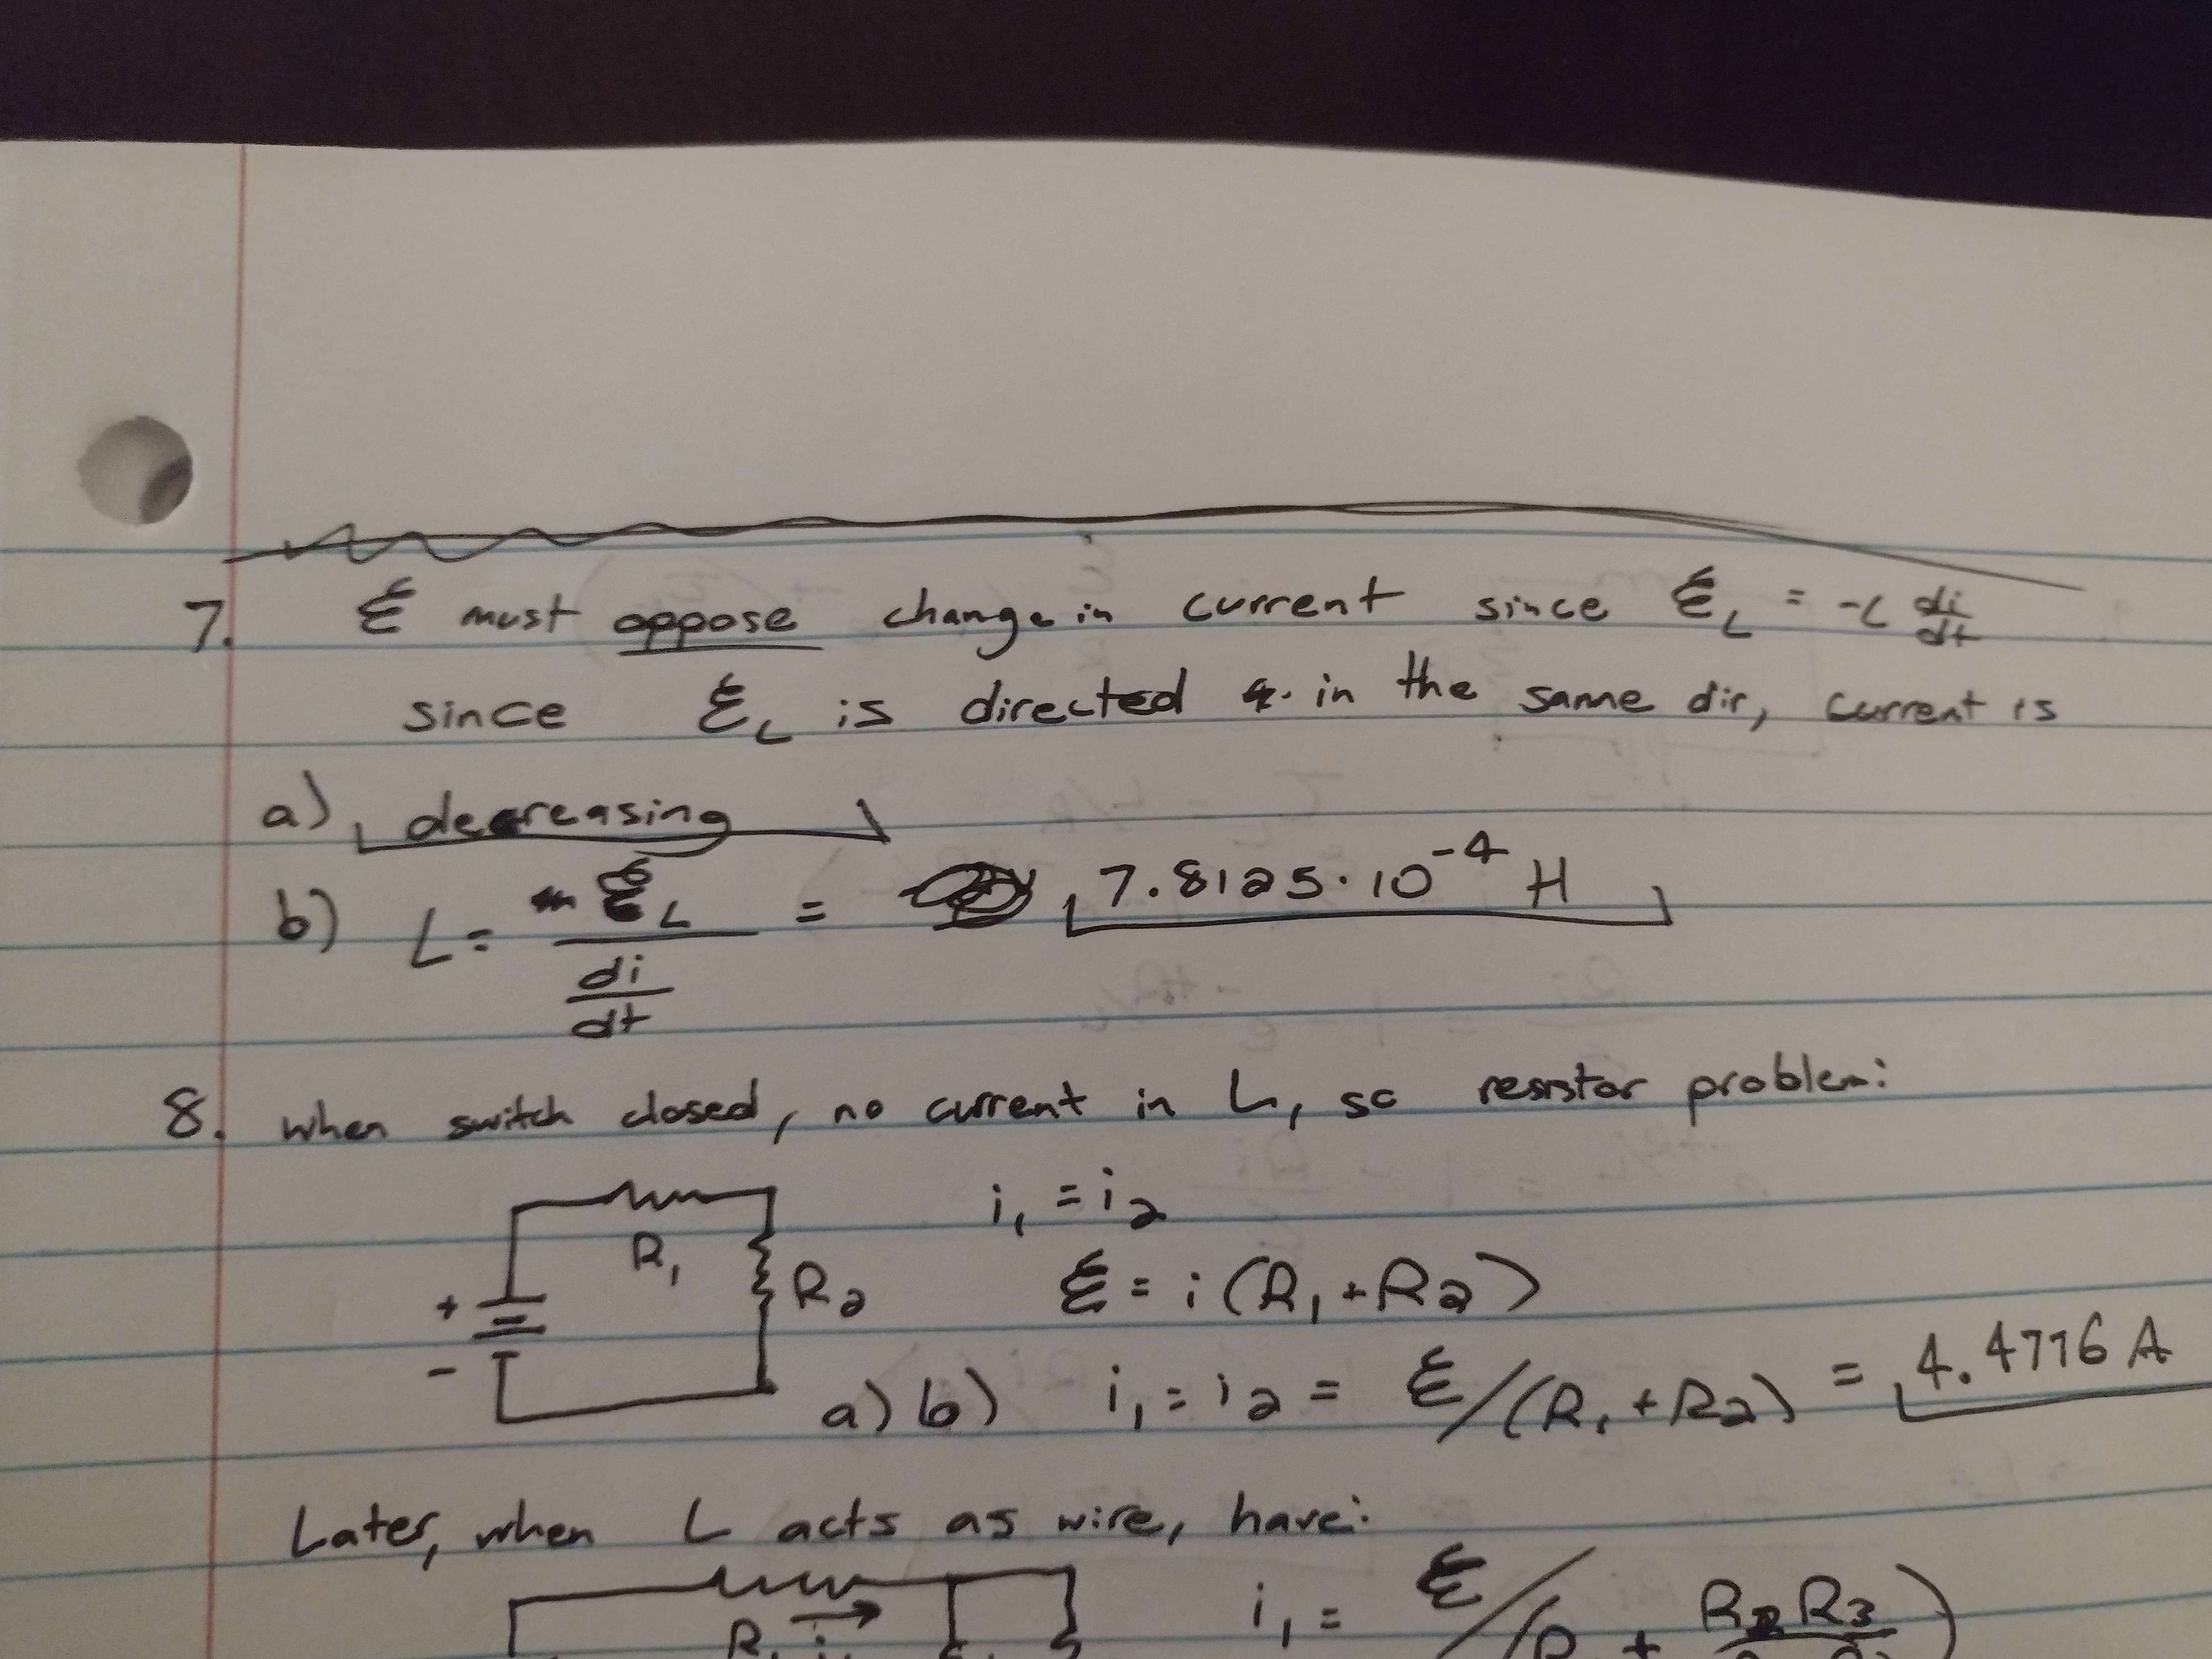 7. ℰ must oppose change in current since ℰ_L = -L di/dt
since ℰ_L is directed in the same dir, current is
a) decreasing
b) L = ℰ_L / (di/dt) = 7.8125·10⁻⁴ H
8. when switch closed, no current in L, so resistor problem:
i₁ = i₂
R₁
R₂
+
-
ℰ = i(R₁+R₂)
a) b) i₁ = i₂ = ℰ/(R₁+R₂) = 4.4776 A
Later, when L acts as wire, have:
R₁ i
i₁ = ℰ/(R₁ + R₂R₃